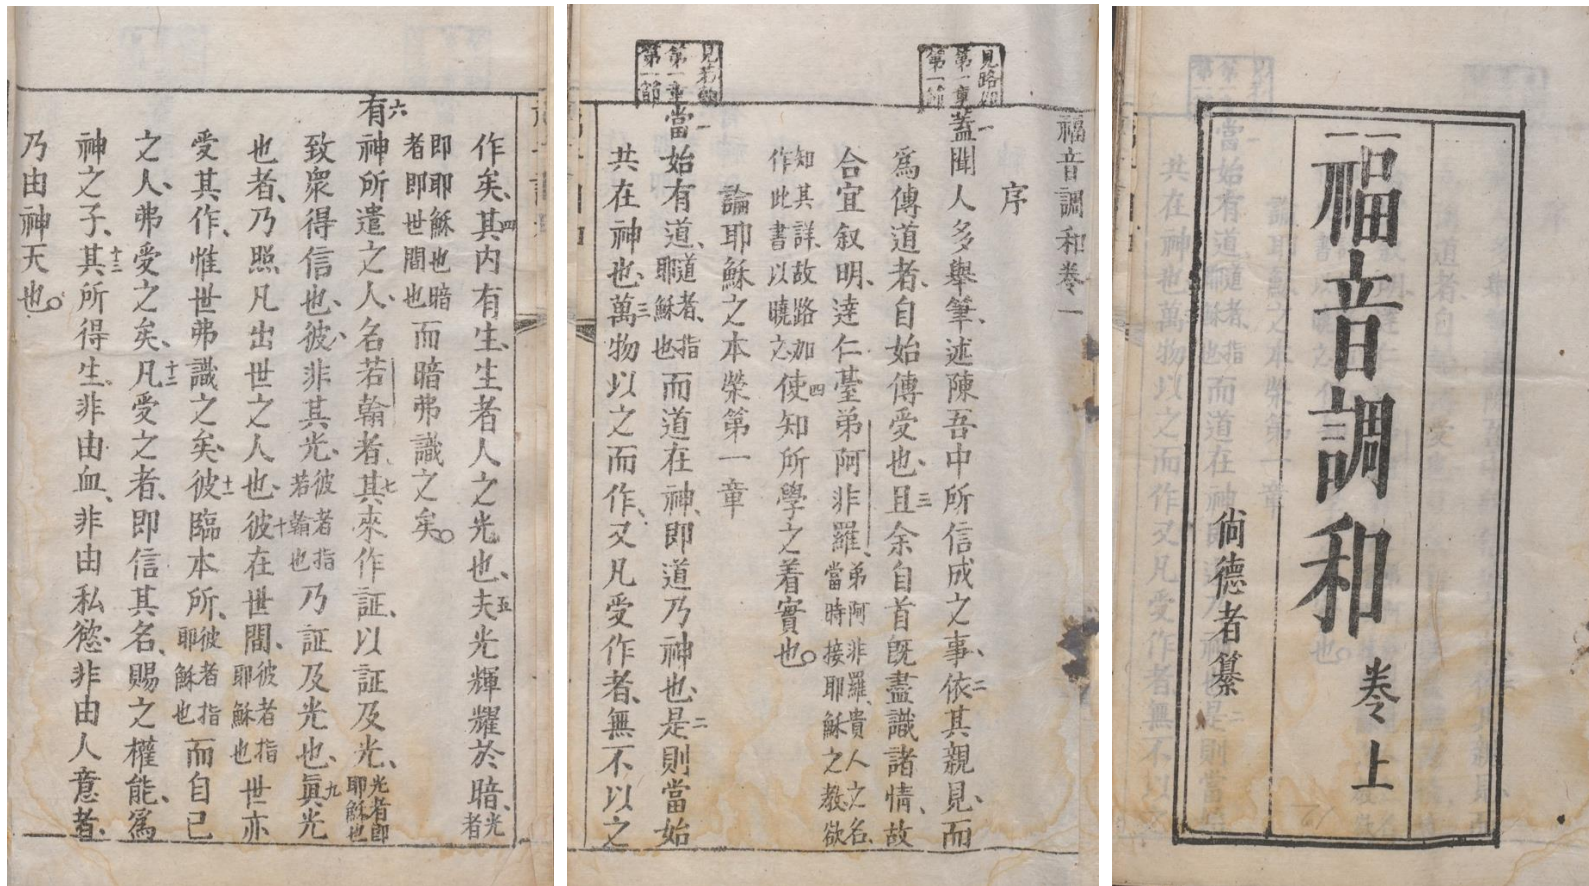 福音調和 卷上
尙德者纂
福音調和卷一
序
見路加
第一章
第一節
一蓋聞人多舉筆、述陳吾中所信成之事、二依其親見、而
爲傳道者、自始傳受也、三且余自首既盡識諸情、故
合宜叙明、達仁臺弟阿非羅、弟阿非羅、貴人之名、當時接耶穌之教、欲
知其詳、故路加作此書以曉之、四使知所學之着實也○
論耶穌之本榮第一章
見若翰
第一章
第一節
一當始有道、道者、指耶穌也而道在神、即道乃神也、二是則當始
共在神也、三萬物以之而作、又凡受作者、無不以之
作矣、四其內有生、生者人之光也、五夫光輝耀於暗、光者
即耶穌也暗者即世間也而暗弗識之矣○
六有神所遣之人、名若翰者、七其來作証、以証及光、光者即耶穌也
致衆得信也、彼非其光、彼者指若翰也乃証及光也、九眞光
也者、乃照凡出世之人也、十彼在世間、彼者指耶穌也世亦
受其作、惟世弗識之矣、十一彼臨本所、彼者指耶穌也而自己
之人、弗受之矣、十二凡受之者、即信其名、賜之權能、爲
神之子、十三其所得生、非由血、非由私慾、非由人意者、
乃由神天也○